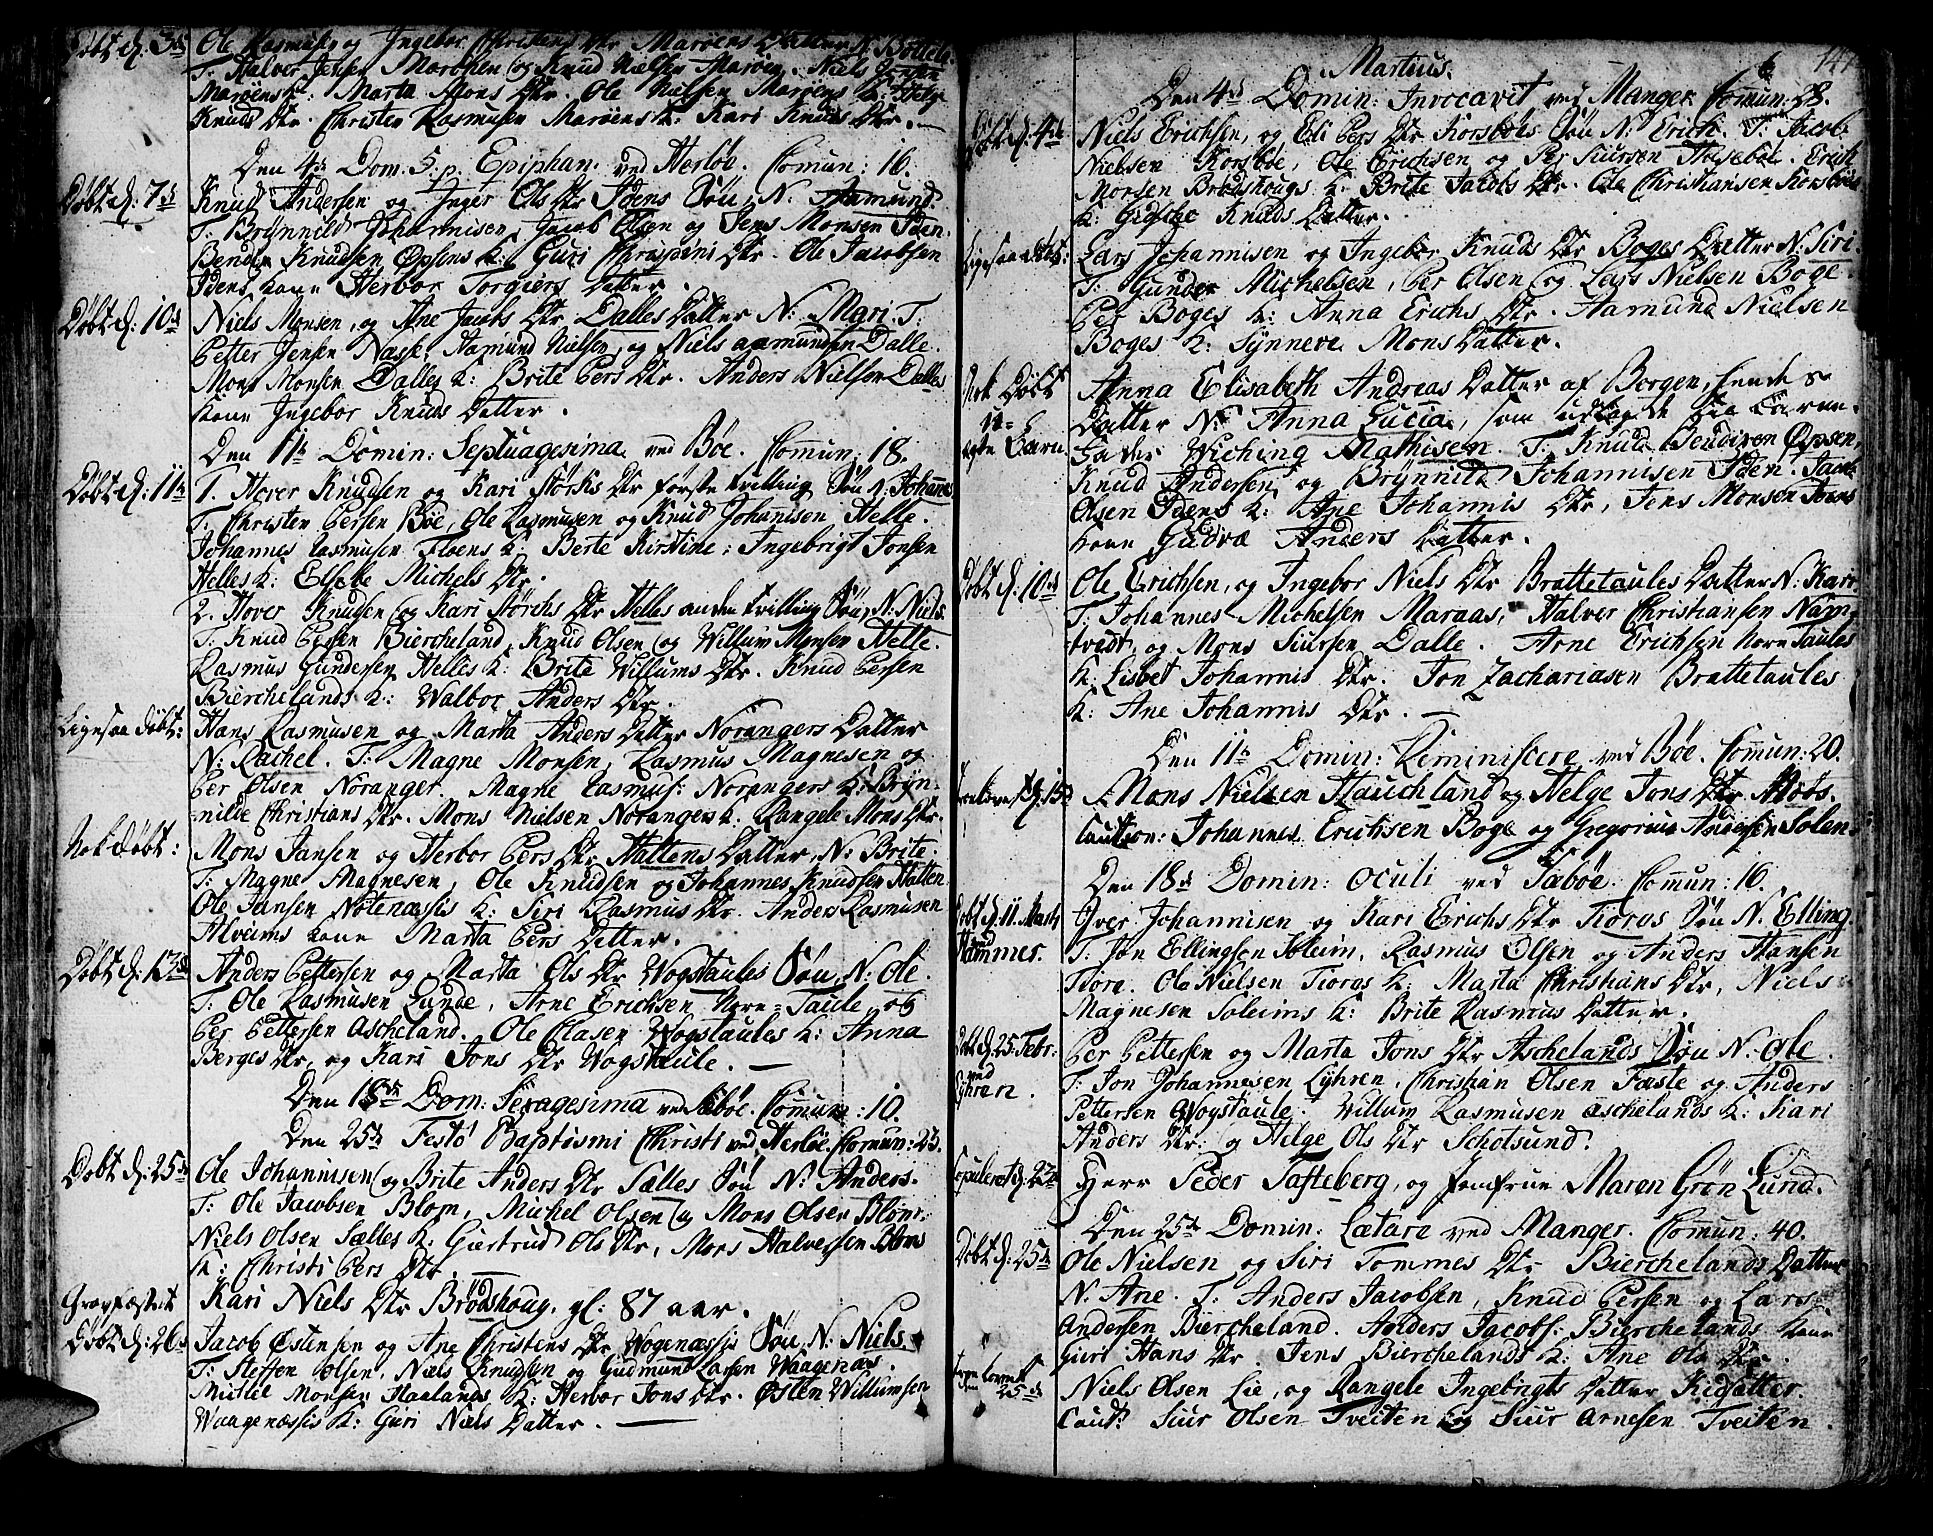 Døbt d: 3de Ole Rasmusen og Ingebor Christens Dtr Marøens Datter N: Bottele
T: Halver Jensen Marøen og Knud Nielsen Marøen. Niels Jensen
Marøens K: Marta Mons Dtr. Ole Nielsen Marøens K: Helge
Knuds Dtr. Christen Rasmusen Marøens K: Kari Knuds Dtr.
Den 4de Dom. 5. p. Epiphan. ved Herlöe. Comun: 16.
Døbt d: 7de Knud Andersen og Inger Ols Dtr Idens Søn N. Aamund.
T. Brÿnnild Johannisen, Jacob Olsen og Jens Monsen Iden.
Bendix Knudsen Øpsens K: Guri Christens Dtr. Ole Jacobsen
Idens kone Herbor Torgiers Datter.
Døbt d: 10de Niels Monsen, og Ane Jacobs Dtr Dalles Datter N: Mari. T.
Petter Jensen Nasse, Aamund Nielsen, og Niels Aamundsen Dalle.
Mons Monsen Dalles K: Brite Pers Dtr. Anders Nielsen Dalles
kone Ingebor Knuds Datter.
Den 11te Domin: Septuagesima ved Böe. Comun: 18.
Døbt d: 11te 1. Hover Knudsen og Kari Störks Dtr første tvilling Søn N. Johannes
T. Christen Persen Böe, Ole Rasmusen og Knud Johannisen Helle.
Johannes Rasmusen Floens K: Berte Kirstine: Ingebrigt Jonsen
Helles K: Elsebe Michels Dtr.
2. Hover Knudsen og Kari Störchs Dtr Helles anden tvilling Søn, N: Niels.
T. Knud Persen Biercheland, Knud Olsen og Willum Monsen Helle.
Rasmus Gundersen Helles K: Brite Willums Dtr. Knud Persen
Bierchelands K: Walbor Anders Dtr.
Ligesaa døbt: Hans Rasmusen og Marta Anders Datter Norangers Datter
N: Rachel. T: Magne Monsen, Rasmus Magnesen og
Per Olsen Noranger. Magne Rasmus: Norangers K: Brÿn-
nilde Christians Dtr. Mons Nielsen Norangers K. Rangele Mons Dtr.
Nok døbt: Mons Jansen og Herbor Pers Dtr Haltens Datter, N: Brite.
T: Magne Magnesen, Ole Knudsen og Johannes Knudsen Halten
Ole Jansen Nótenæssis K: Siri Rasmus Dtr. Anders Rasmusen
Alvems kone Marta Pers Datter.
Døbt d: 17de Anders Pettersen og Marta Ols Dtr Wogstaules Søn N: Ole.
T: Ole Rasmusen Lunde, Arne Erichsen Norn-Taule og
Per Pettersen Ascheland. Ole Clasen Wogstaules K: Anna
Berges Dtr, og Kari Jons Dtr Wogstaule.
Den 18de Dom: Sexagesima ved Sæböe. Comun: 10.
Den 25de Festo Baptismi Christi ved Herlöe. Comun: 23.
Døbt d: 25de Ole Johannisen og Brite Anders Dtr Sælles Søn N: Anders.
T: Ole Jacobsen Blom, Michel Olsen og Mons Olsen Blom:
Niels Olsen Sælles K: Giertrud Ols Dtr, Mons Halversen Bloms
K: Christi Pers Dtr.
Gravfæstet Kari Niels Dtr Brödshoug, gl: 87 aar.
Døbt d: 26de Jacob Østensen og Ane Christens Dtr Wogenæssis Søn N: Niels.
T: Steffen Olsen, Niels Knudsen og Gudmund Larsen Waagenæs.
Michel Monsen Haalands K: Herbor Jons Dtr. Østen Willumsen
Waagenæssis K: Guri Niels Datter.
Martius. 147
Den 4de Domin: Invocavit ved Manger Comun: 28.
Døbt d: 4de Niels Erichsen, og Eli Pers Dtr Korsböes Søn N: Erich. T: Jacob
Nielsen Korsböe, Ole Erichsen og Per Siursen Haseböe. Erich
Monsen Brødshougs K: Brite Jacobs Dtr. Ole Christiansen Korsböes
K: Gidske Knuds Datter.
Ligesaa døbt: Lars Johannisen og Ingebor Knuds Dtr Boges Datter N: Siri
T: Gunder Michelsen, Per Olsen og Lars Nielsen Boge.
Per Boges K: Anna Erichs Dtr. Aamund Nielsen
Boges K: Synneve Mons Datter.
Nok Døbt u-ægte Barn Anna Elisabeth Andreas Datter af Bergen, hendes
Datter N: Anna Lucia, som udlagde til Barne-
Fader Wiching Mathisen. T. Knud Bendixen Øpsen,
Knud Andersen og Brÿnnild Johannisen Iden. Jacob
Olsen Idens K: Ane Johannis Dtr, Jens Monsen Idens
kone Gudvæ Anders Datter.
Døbt d: 10de Ole Erichsen, og Ingebor Niels Dtr Brattetaules Datter N: Kari
T: Johannes Michelsen Maraas, Halver Christiansen Nam-
tvedt, og Mons Siursen Dalle. Arne Erichsen Norn Taules
K: Lisbet Johannis Dtr. Jon Zachariasen Brattetaules
K: Ane Johannis Dtr.
Den 11te Domin: Reminiscere ved Böe. Comun: 20.
Trolovet d: 15de Mons Nielsen Hauchland og Helge Jons Dtr
Caution: Johannes Erichsen Boge og Gregorius Andersen Solem.
Den 18de Domin: Oculi ved Sæböe. Comun: 16.
Døbt d. 11. Marti Hammer. Iver Johannisen og Kari Erichs Dtr Tioras Søn N. Elling.
T: Jon Ellingsen Soleim, Rasmus Olsen og Anders Hansen
Tiore. Ole Nielsen Tioras K: Marta Christians Dtr, Niels
Magnesen Soleims K: Brite Rasmus Datter.
Døbt d. 25. Febr: ved Lyhren. Per Pettersen og Marta Jons Dtr Aschelands Søn N: Ole.
T: Jon Johannesen Lÿhren, Christian Olsen Fæste og Anders
Pettersen Wogstaule. Willum Rasmusen Aschelands K: Kari
Anders Dtr: og Helge Ols Dtr Schotsund.
Copuleret d. 22de Herr Peder Tafteberg, og Jomfrue Maren Grøn Lund.
Den 25de Domin: Lætare ved Manger. Comun: 40.
Døbt d: 25de Ole Nielsen og Siri Tommes Dtr Bierchelands Datter
N. Ane. T. Anders Jacobsen, Knud Persen og Lars
Andersen Biercheland. Anders Jacobs: Bierchelands kone
Guri Hans Dtr. Jens Bierchelands K: Ane Ols Dtr.
Trolovet den 25de Niels Olsen Lie, og Rangele Ingebrigts Datter Kidsætter.
Caut: Siur Olsen Tveiten og Siur Arnesen Tveiten.